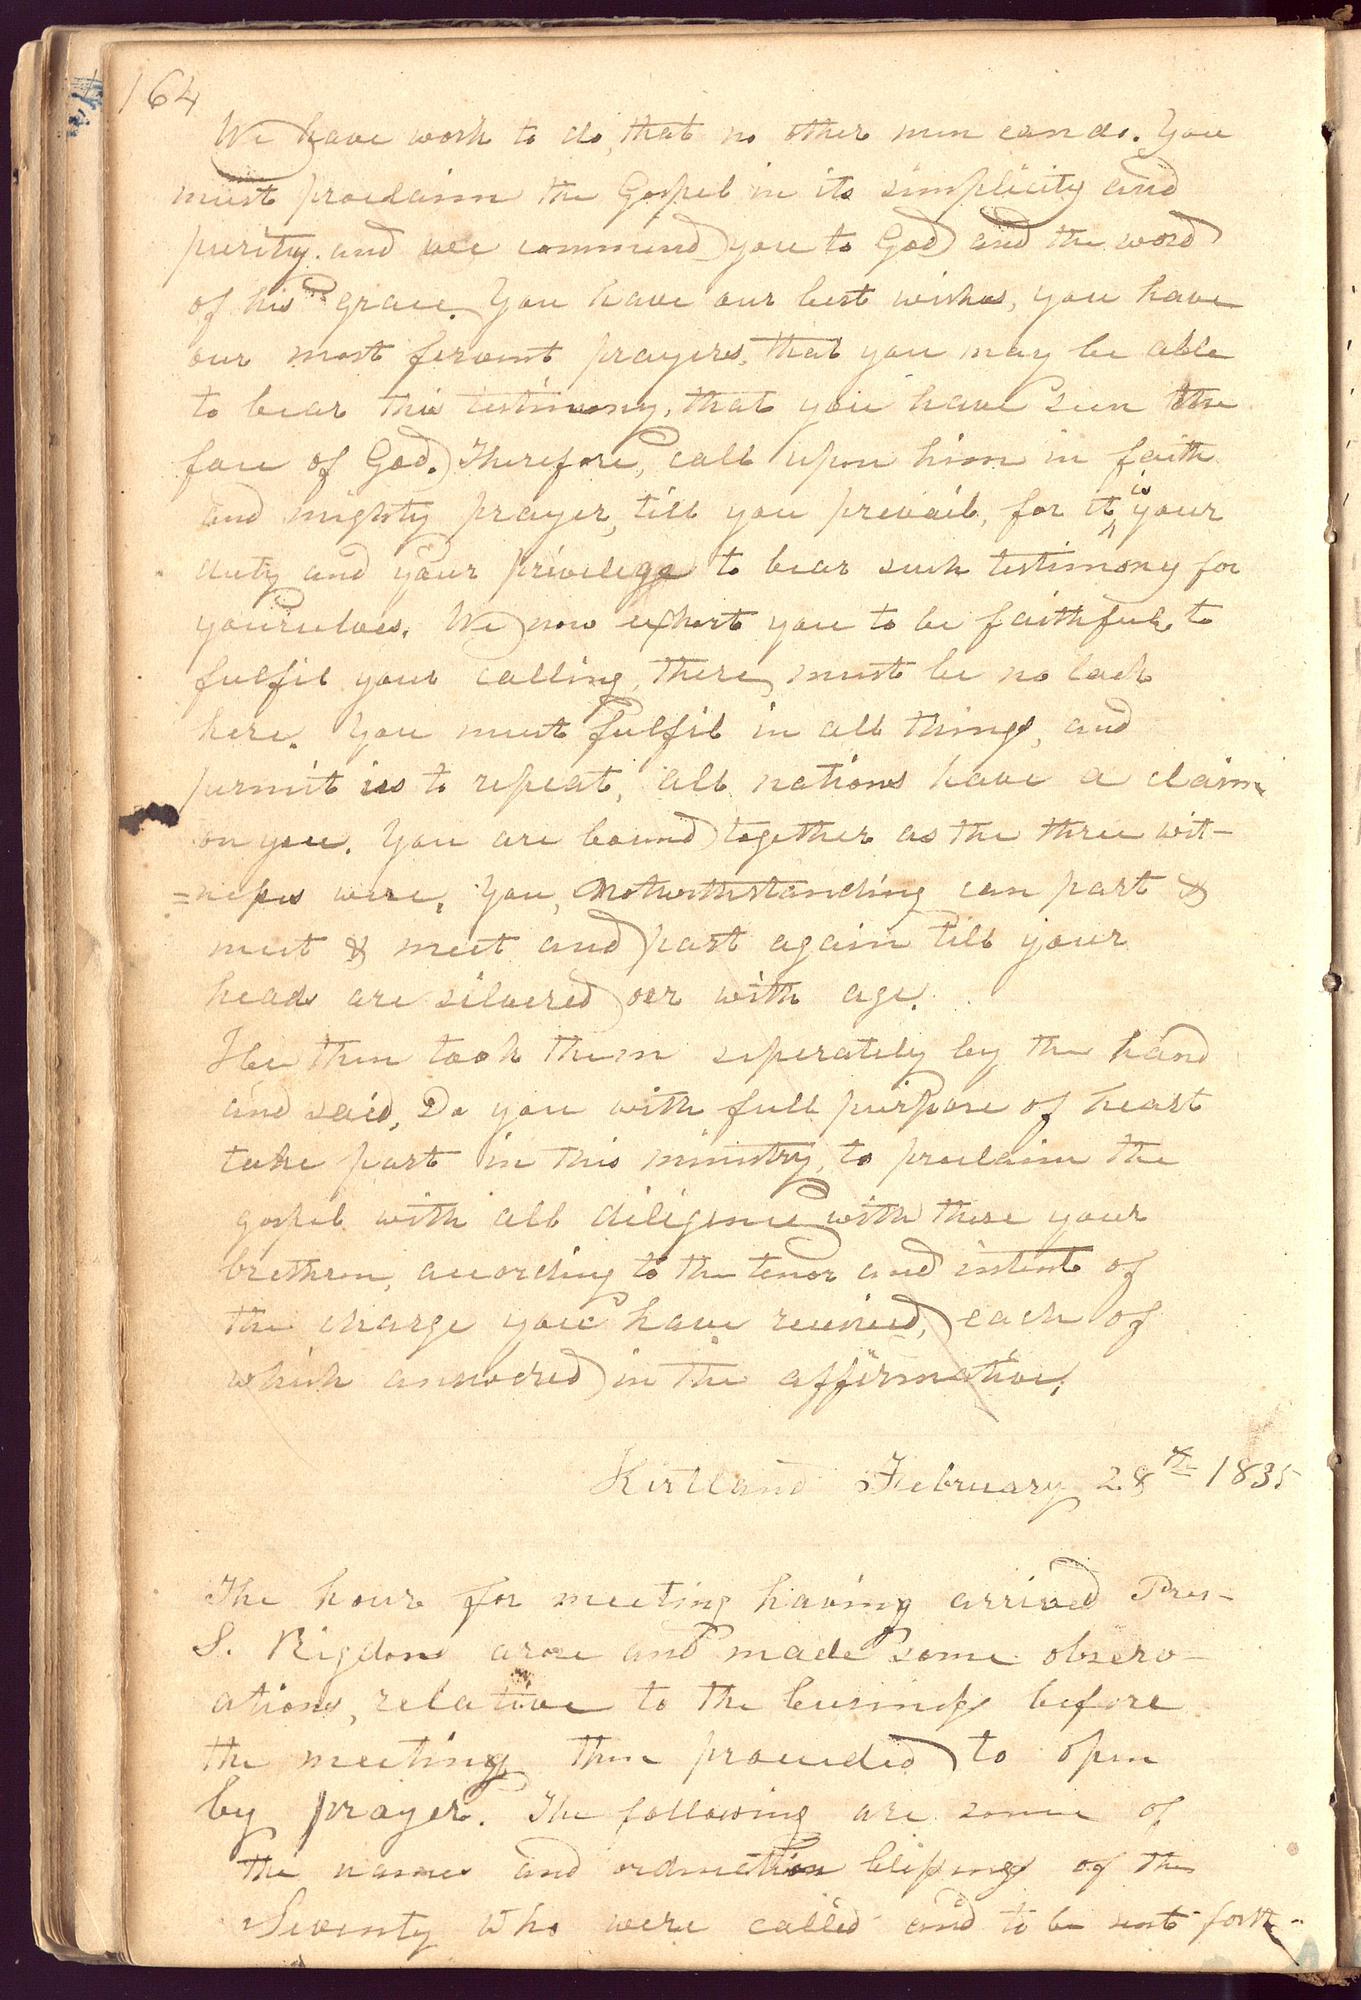 164
We have work to do, that no other men can do. You
must proclaim the Gospel in its simplicity and
purity. and we commend you to God and the word
of his grace. You have our best wishes, you have
our most fervent prayers, that you may be able
to bear this testimony, that you have seen the
face of God. Therefore, call upon him in faith
and mighty prayer, till you prevail, for it is your
duty and your privilege to bear such testimony for
yourselves. We now exhort you to be faithful to
fulfil your calling, there must be no lack
here. You must fulfil in all things, and
permit us to repeat, all nations have a claim
on you. You are bound together as the three wit-
=nesses were, You, notwithstanding can part &
meet & meet and part again till your
heads are silvered oer with age.
He then took them seperately by the hand
and said, Do you with full purpose of heart
take part in this ministry, to proclaim the
gospel with all diligence with these your
brethren, according to the tenor and intent of
the charge you have received, each of
which answered in the affirmative,
Kirtland February 28th 1835
The hour for meeting having arrived Pres-
S. Rigdon arose and made some observ-
ations, relative to the business before
the meeting then proceeded to open
by prayer. The following are some of
the names and ordination blessings of the
Seventy who were called and to be sent forth-